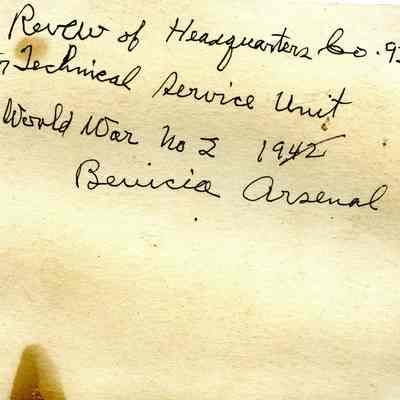 Review of Headquarters Co. 9
Technical Service Unit
World War No 2 1942
Benicia Arsenal